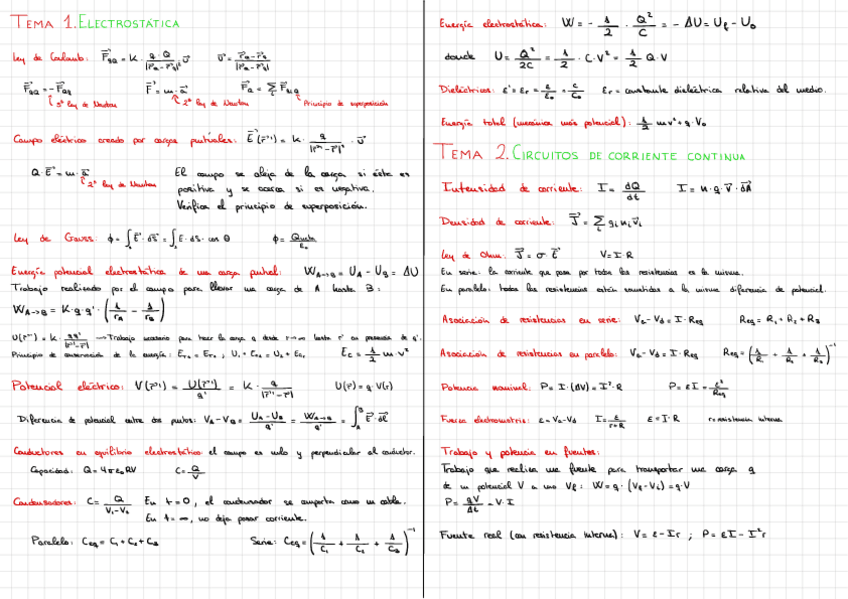 TEMA 1. ELECTROSTÁTICA
Ley de Coulomb: F⃗qQ = K · q · Q / |r⃗Q - r⃗q|² u⃗    u⃗ = r⃗Q - r⃗q / |r⃗Q - r⃗q|
F⃗qQ = - F⃗Qq    F⃗ = m · a⃗    F⃗Q = Σ F⃗
3ª ley de Newton    2ª ley de Newton    Principio de superposición
Campo eléctrico creado por cargas puntuales: E⃗ (r⃗') = K · q / |r⃗' - r⃗|² · u⃗
Q · E⃗ = m · a⃗    El campo se aleja de la carga si ésta es
2ª ley de Newton    positiva y se acerca si es negativa.
Verifica el principio de superposición.
Ley de Gauss: ϕ = ∫ E⃗ · dS⃗ = ∫ E · dS · cos θ    ϕ = Qneta / ε₀
Energía potencial electrostática de una carga puntual: W A→B = U A - U B = ΔU
Trabajo realizado por el campo para llevar una carga de A hasta B:
W A→B = K · q · q' · (1/rA - 1/rB)
U(r⃗') = K · qq' / |r⃗' - r⃗| → Trabajo necesario para traer la carga q desde r→∞ hasta r' en presencia de q'.
Principio de conservación de la energía:    Ec = 1/2 m · v²
Potencial eléctrico: V(r⃗') = U(r⃗') / q' = K · q / |r⃗' - r⃗|    U(r) = q · V(r)
Diferencia de potencial entre dos puntos: VA - VB = UA - UB / q' = W A→B / q' = ∫ E⃗ · dl⃗
Conductores en equilibrio electrostático el campo es nulo y perpendicular al conductor.
Capacidad: Q = 4πε₀RV    C = Q/V
Condensadores: C = Q / V₁ - V₂    En t = 0, el condensador se comporta como un cable.
En t = ∞, no deja pasar corriente.
Paralelo: Ceq = C₁ + C₂ + C₃    Serie: Ceq = (1/C₁ + 1/C₂ + 1/C₃)⁻¹
Energía electrostática: W = - 1/2 · Q²/C = - ΔU = Uf - U₀
donde U = Q²/2C = 1/2 · C · V² = 1/2 Q · V
Dieléctricos: ε' = εr = ε/ε₀ = C/C₀    εr = constante dieléctrica relativa del medio.
Energía total (mecánica más potencial): 1/2 mv² + q · V₀
TEMA 2. CIRCUITOS DE CORRIENTE CONTINUA
Intensidad de corriente: I = dQ/dt    I = n · q · v⃗ · dA⃗
Densidad de corriente: J⃗ = Σ qi ni v⃗i
Ley de Ohm: J⃗ = σ E⃗    V = I · R
En serie: la corriente que pasa por todas las resistencias es la misma.
En paralelo: todas las resistencias están sometidas a la misma diferencia de potencial.
Asociación de resistencias en serie: Va - Vd = I · Req    Req = R₁ + R₂ + R₃
Asociación de resistencias en paralelo: Va - Vd = I · Req    Req = (1/R₁ + 1/R₂ + 1/R₃)⁻¹
Potencia nominal: P = I · (ΔV) = I² · R    P = εI = ε²/Req
Fuerza electromotriz: ε = Va - Vd    I = ε / r+R    ε = I · R    r = resistencia interna
Trabajo y potencia en fuentes:
Trabajo que realiza una fuente para transportar una carga q
de un potencial V a uno Vf: W = q · (Vf - Vi) = q · V
P = qV/Δt = V · I
Fuente real (con resistencia interna): V = ε - Ir ; P = εI - I²r